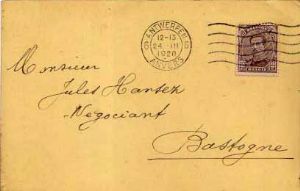 ANTWERPEN
12-13
24 III
1920
ANVERS
Monsieur
Jules Hansek
Negociant
Bastogne